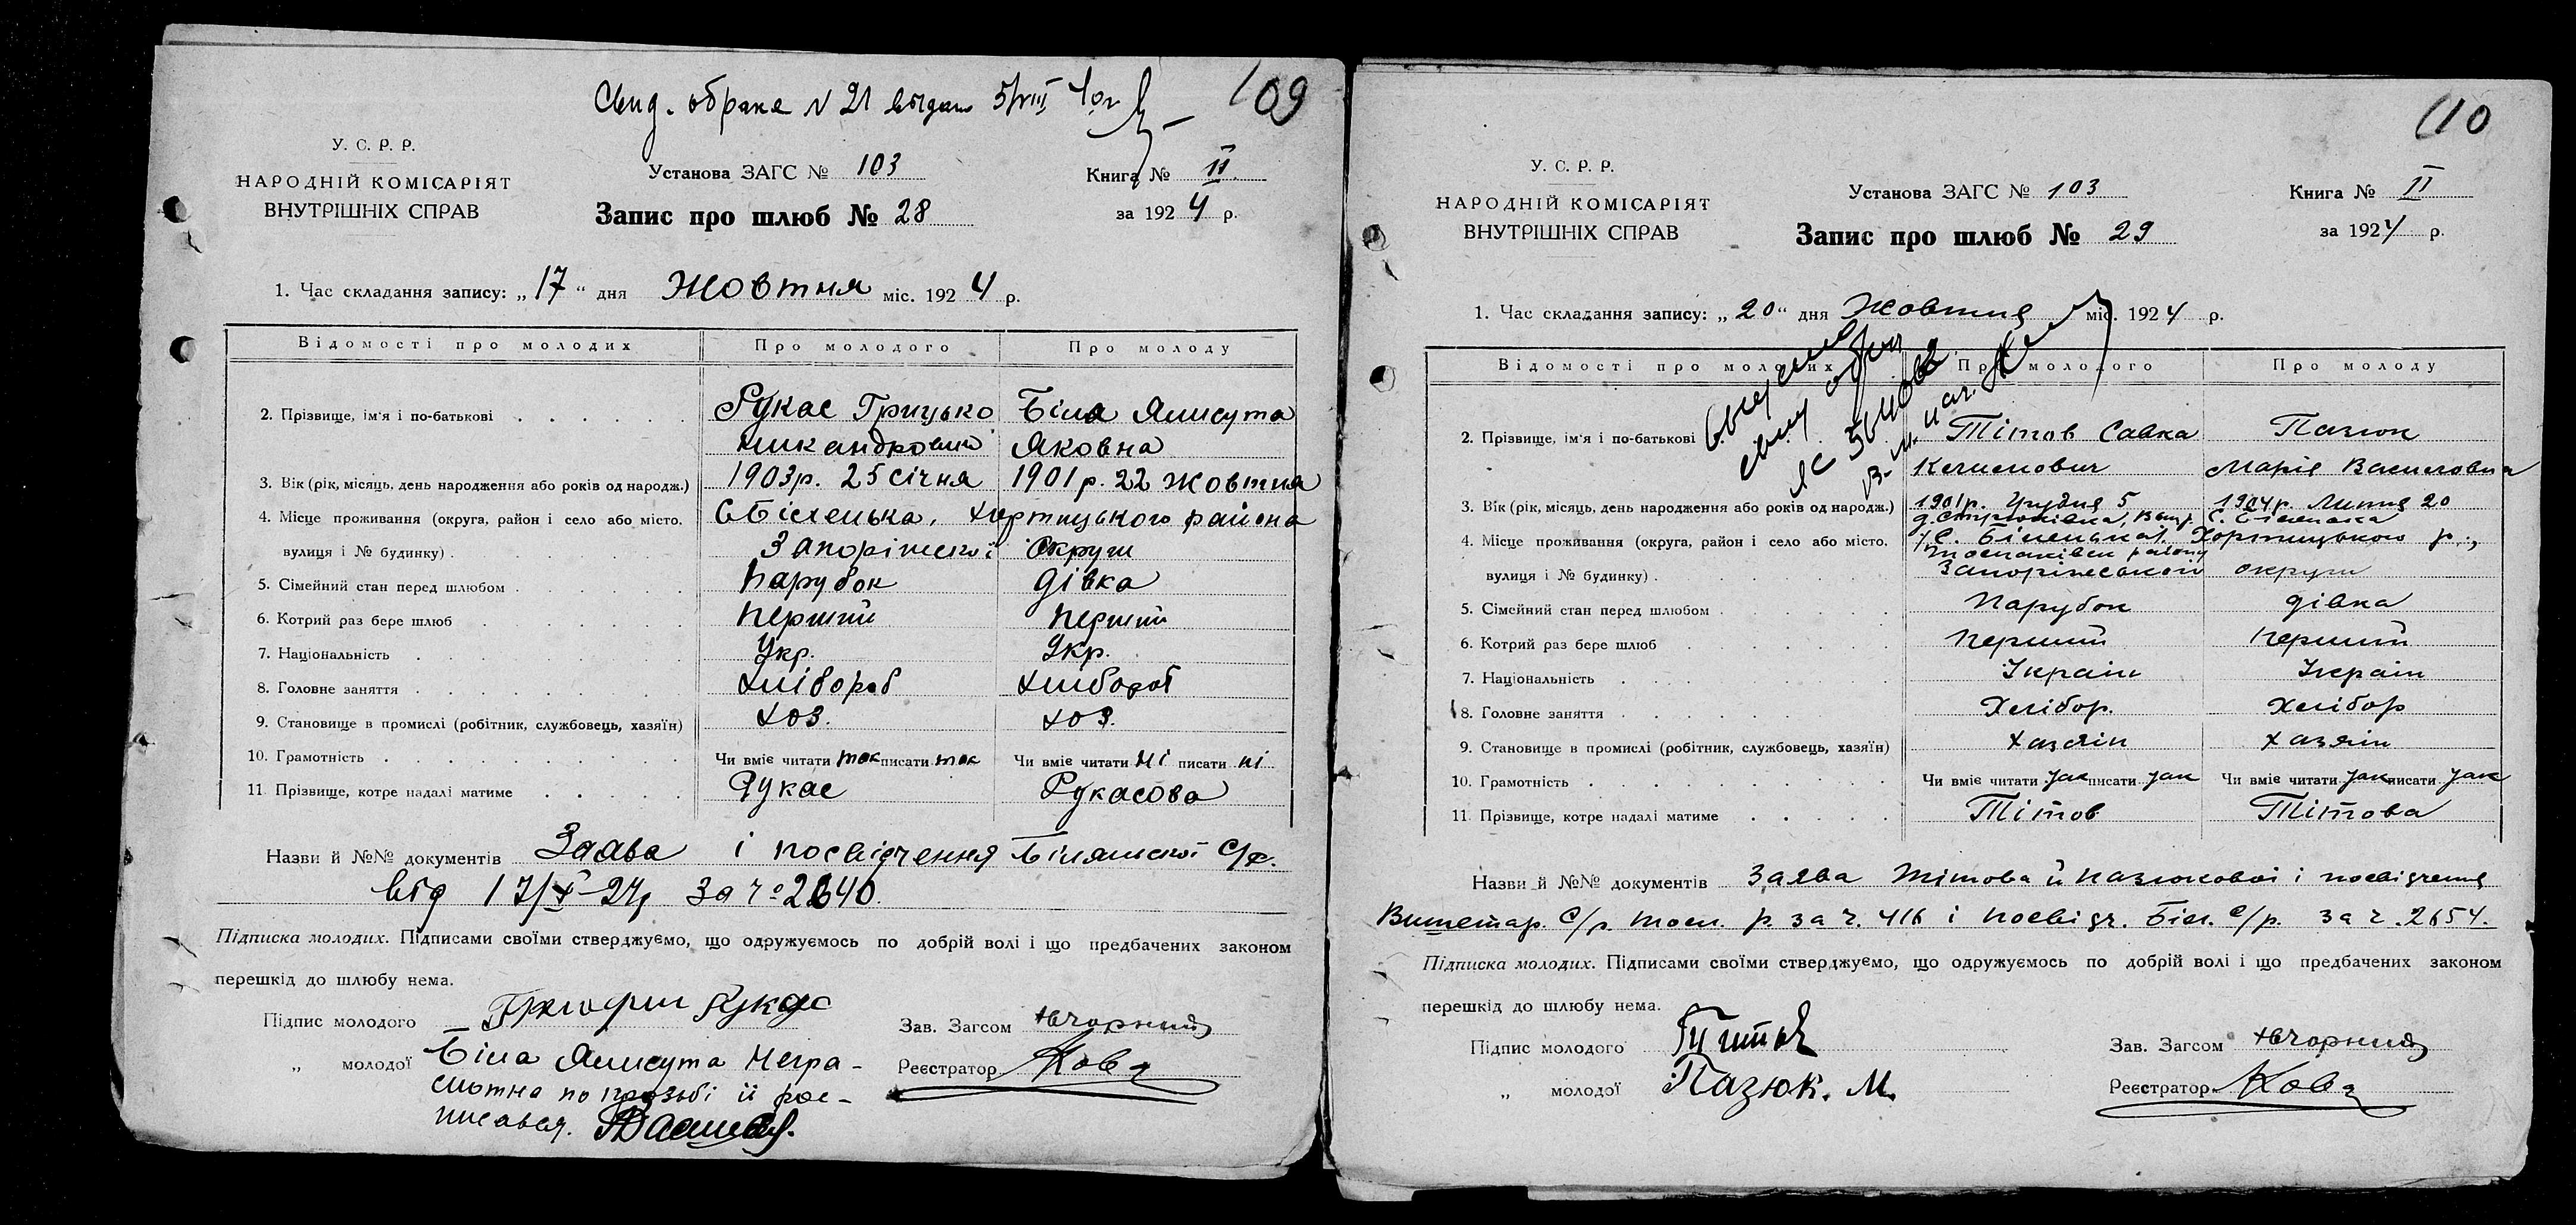 Свид. обраке N 21 выдан 5/VIII 40г
109
У. С. Р. Р.
НАРОДНІЙ КОМІСАРІЯТ
ВНУТРІШНІХ СПРАВ
Установа ЗАГС № 103
Запис про шлюб № 28
Книга № II.
за 1924 р.
1. Час складання запису: „17“ дня Жовтня міс. 1924 р.
Відомості про молодих Про молодого Про молоду
2. Прізвище, ім'я і по-батькові Рукас Грицько Біла Ялисута
Никандрович Яковна
3. Вік (рік, місяць, день народження або років од народж.) 1903р. 25 січня 1901 р. 22 жовтня
4. Місце проживання (округа, район і село або місто, с. Біленька, Хортицького района
вулиця і № будинку) Запоріжської Округи
5. Сімейний стан перед шлюбом Парубок дівка
6. Котрий раз бере шлюб перший перший
7. Національність Укр. Укр.
8. Головне заняття Хлібороб Хлібороб
9. Становище в промислі (робітник, службовець, хазяїн) хоз. хоз.
10. Грамотність Чи вміє читати так писати так Чи вміє читати ні писати ні
11. Прізвище, котре надалі матиме Рукас Рукасова
Назви й №№ документів Заява і посвідчення Біляньскої С/р.
від 17/X-24 за ч 2640.
Підписка молодих. Підписами своїми стверджуємо, що одружуємось по добрій волі і що предбачених законом
перешкід до шлюбу нема.
Підпис молодого Рукас
„ молодої Біла Ялисута Негра-
мотна по прозьбі її рос-
писався.
Зав. Загсом
Реєстратор
110
У. С. Р. Р.
НАРОДНІЙ КОМІСАРІЯТ
ВНУТРІШНІХ СПРАВ
Установа ЗАГС № 103
Запис про шлюб № 29
Книга № II
за 1924 р.
1. Час складання запису: „20“ дня Жовтня міс. 1924 р.
Відомості про молодих Про молодого Про молоду
2. Прізвище, ім'я і по-батькові Тітов Савка Пазюк
Климович Марія Василовна
3. Вік (рік, місяць, день народження або років од народж.) 1901р. Грудня 5 1904р. Липня 20
с. Біленька
4. Місце проживання (округа, район і село або місто, с. Біленька Хортицького р.,
району
вулиця і № будинку) Запоріжської округи
5. Сімейний стан перед шлюбом Парубок дівка
6. Котрий раз бере шлюб Перший Перший
7. Національність Україн Україн
8. Головне заняття Хлібор. Хлібор
9. Становище в промислі (робітник, службовець, хазяїн) хазяін хазяін
10. Грамотність Чи вміє читати так писати так Чи вміє читати так писати так
11. Прізвище, котре надалі матиме Тітов Тітова
Назви й №№ документів Заява Тітова й Пазюковоі і посвідчення
С/р. р. за ч. 416 і посвідч. Біл. с/р. за ч. 2654.
Підписка молодих. Підписами своїми стверджуємо, що одружуємось по добрій волі і що предбачених законом
перешкід до шлюбу нема.
Підпис молодого Титов
„ молодої Пазюк. М.
Зав. Загсом
Реєстратор